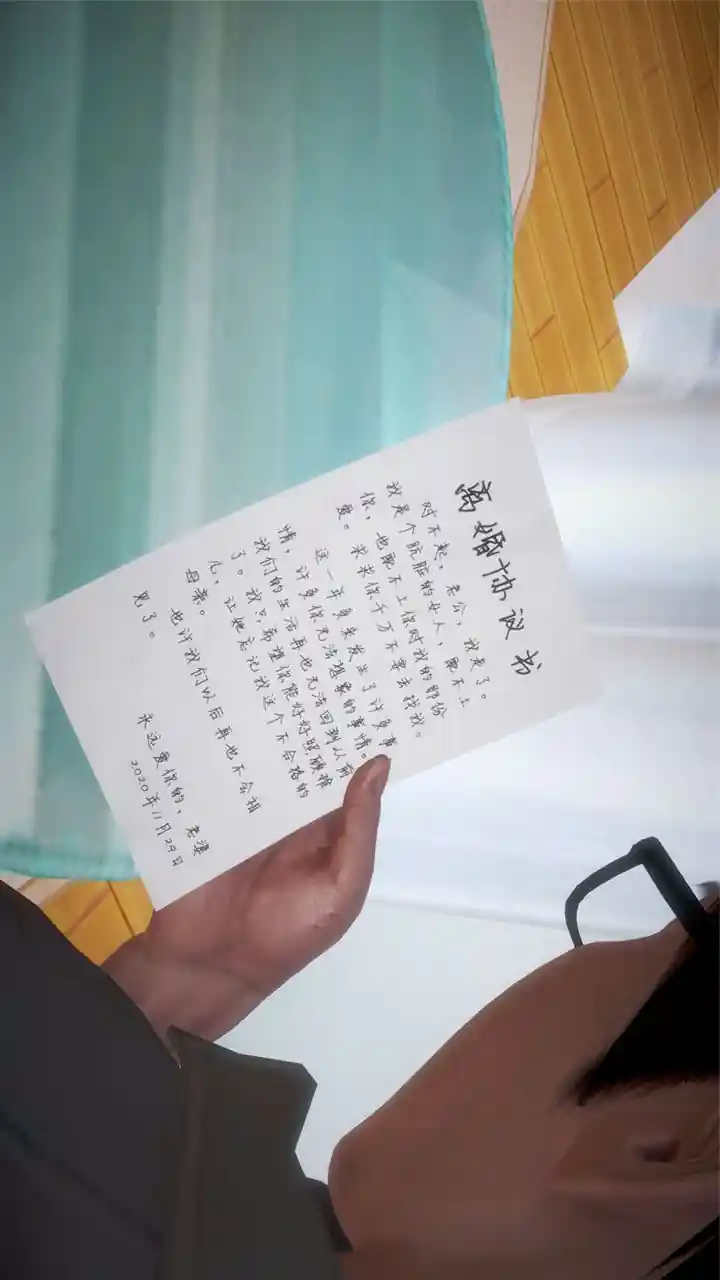 离婚协议书
对不起,老公,我走了。
我是个肮脏的女人,配不上
你,也配不上你对我的那份
爱。求求你千万不要去找我。
这一年多来发生了许多事
情,许多你无法想象的事情。
我们的生活再也无法回到从前
了。我只希望你能好好照顾雅
儿,让她忘记我这个不合格的
母亲。
也许我们以后再也不会相
见了。
永远爱你的,老婆
2020年11月29日